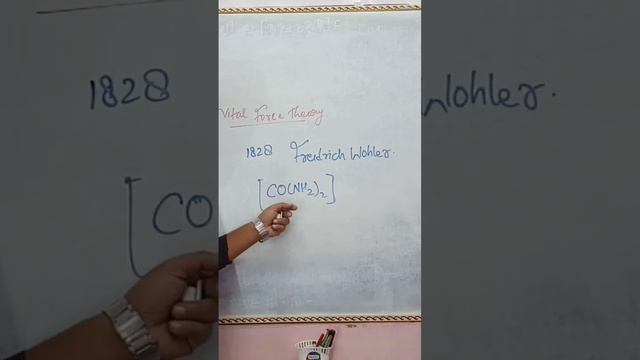 Vital Force Theory
1828 Freidrich Wohler.
[CO(NH2)2]